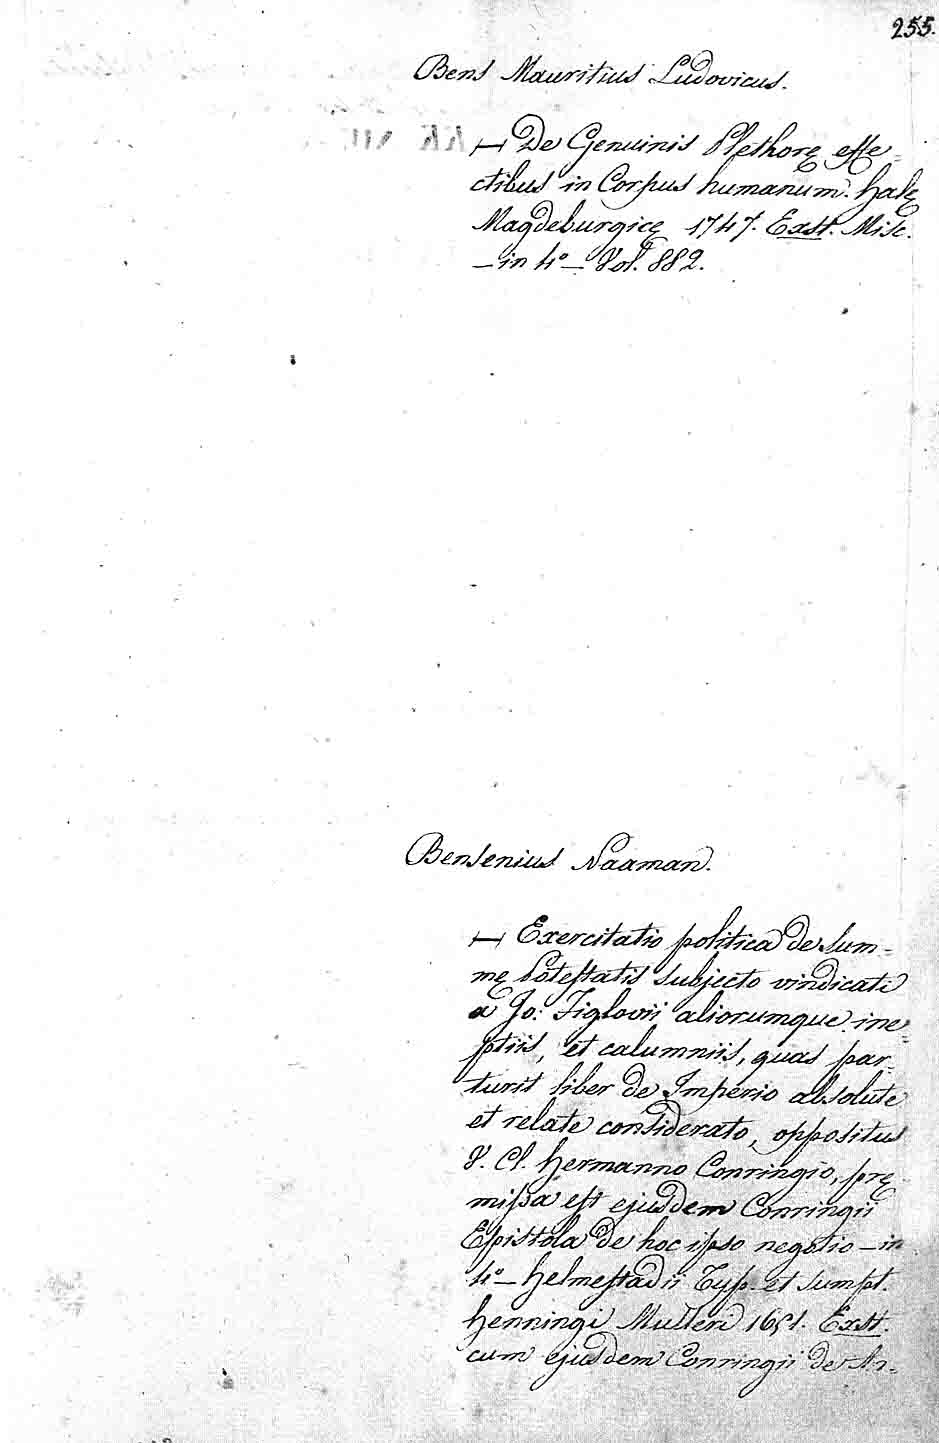 255.
Bens Mauritius Ludovicus.
— De Genuinis Plethorę effe=
ctibus in Corpus humanum. Halę
Magdeburgicę 1747. Exst. Misc.
– in 4° – Vol. 882.
Bensenius Naaman.
— Exercitatio politica de sum=
mę Potestatis subjecto vindicati
a Jo: Tiglovii aliorumque ine=
ptiis, et calumniis, quas par=
turit liber de Imperio absolute
et relate considerato, oppositus
V. Cl. Hermanno Conringio, prę
missa est ejusdem Conringii
Epistola de hoc ipso negotio – in
4° – Helmestadii Typ. et sumpt.
Henningi Mulleri 1651. Exst.
cum ejusdem Conringii de Ar=